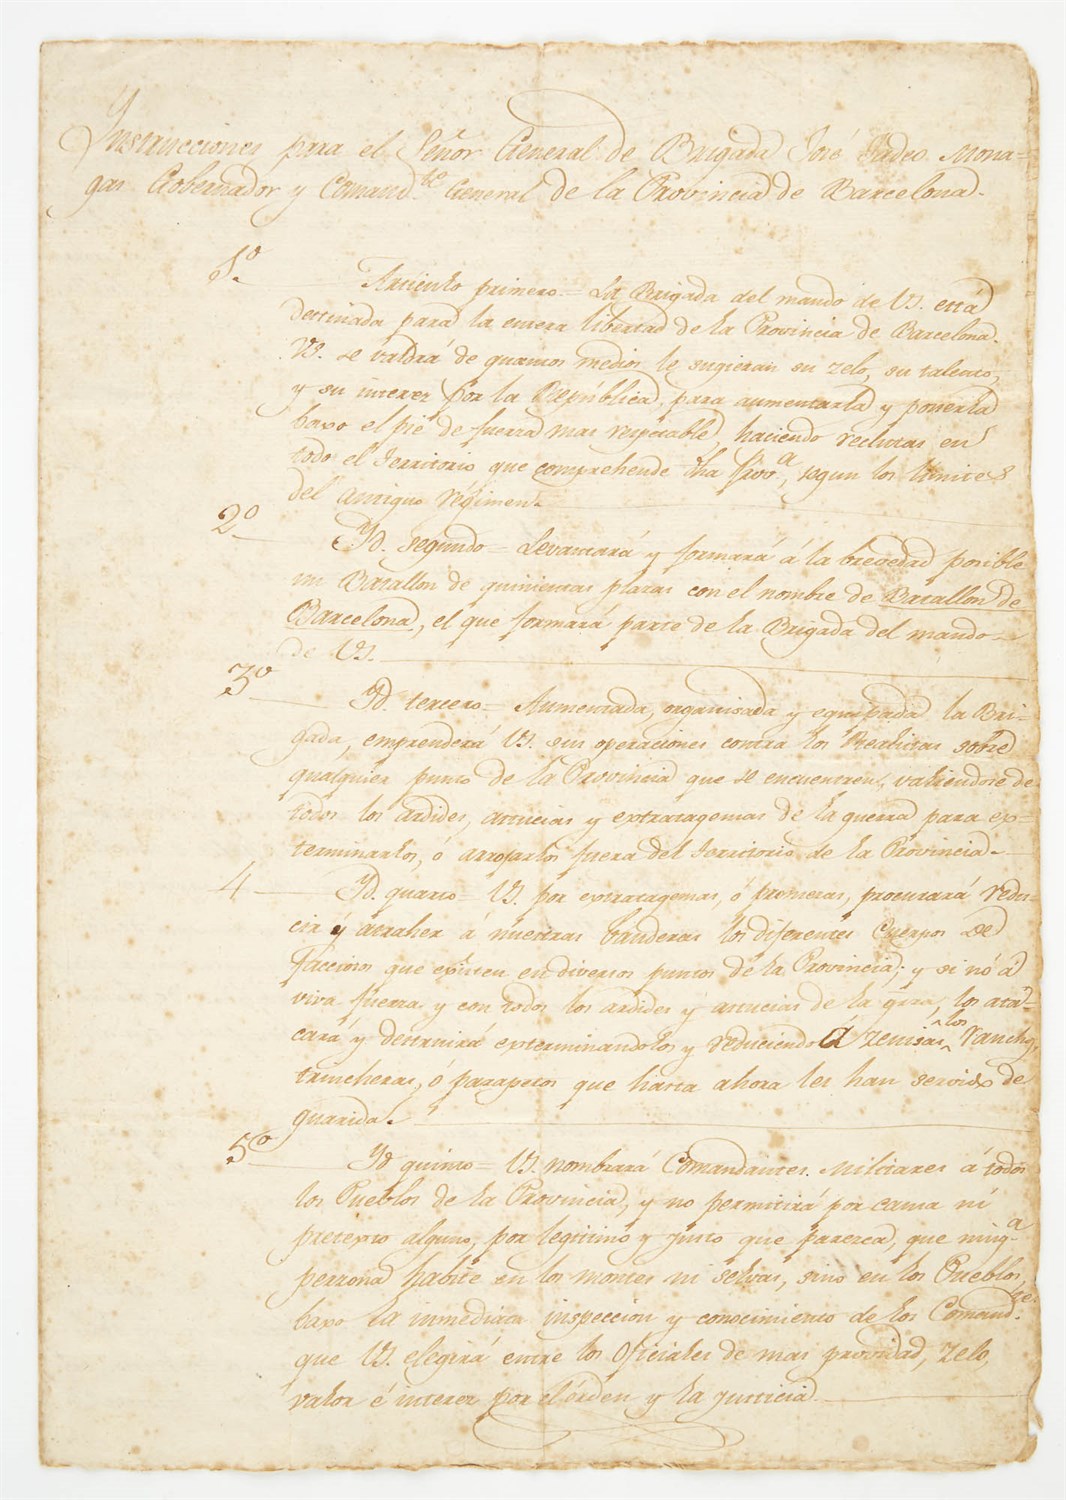 Ynstrucciones para el Señor General de Brigada José Tadeo Mona=
gas Gobernador y Comand.te General de la Provincia de Barcelona.
1.o
Articulo primero = La Brigada del mando de VS. está
destinada para la entera libertad de la Provincia de Barcelona.
VS. se valdrá de quantos medios le sugieran su zelo, su talento,
y su interes por la República, para aumentarla y ponerla
baxo el pié de fuerza mas respetable, haciendo reclutas en
todo el Territorio que comprehende dha Prov.a, segun los limites
del antiguo régimen.
2.o
Yd. segundo = Levantará y formará á la brevedad posible
un Batallon de quinientas plazas con el nombre de Batallon de
Barcelona, el que formará parte de la Brigada del mando
de VS.
3.o
Yd. tercero = Aumentada, organisada y equipada la Bri=
gada, emprenderá VS. sus operaciones contra los Realistas sobre
qualquier punto de la Provincia que se encuentren, valiendose de
todos los ardides, astucias y extratagemas de la guerra para ex=
terminarlos, ó arrojarlos fuera del Territorio de la Provincia.
4
Yd. quarto = VS. por extratagemas, ó promesas, procurará redu=
cir y atraher á nuestras banderas los diferentes Cuerpos de
facciosos que existen en diversos puntos de la Provincia; y si nó á
viva fuerza y con todos los ardides y astucias de la grra, los ata=
cará y destruirá exterminandolos y reduciendo á zenisas los ranchos,
trincheras, ó parapetos que hasta ahora les han servido de
guarida.
5.o
Yd quinto = VS. nombrará Comandantes Militares á todos
los Pueblos de la Provincia, y no permitirá por causa ni
pretexto alguno, por legitimo y justo que parezca, que ning.a
persona habite en los montes ni selvas, sino en los Pueblos,
baxo la inmediata inspeccion y conocimiento de los Comand.tes
que VS. elegirá entre los Oficiales de mas provídad, zelo,
valor é interes por el órden y la justicia